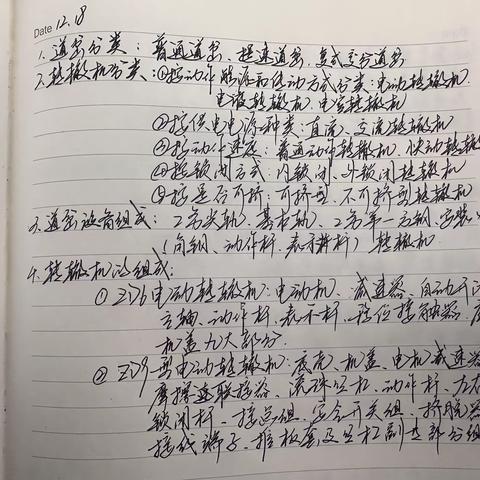 Date 12.18
1. 道岔分类：普通道岔、提速道岔、复式交分道岔
2. 转辙机分类：①按动作能源和传动方式分类：电动转辙机、
电液转辙机、电空转辙机
②按供电电源种类：直流、交流转辙机
③按动作速度：普通动作转辙机、快动转辙
④按锁闭方式：内锁闭、外锁闭转辙机
⑤按是否可挤：可挤型、不可挤型转辙机
3. 道岔设备组成：2号尖轨、基本轨、安装
（角钢、动作杆、表示杆）转辙机
4. 转辙机的组成：
①ZD6电动转辙机：电动机、减速器、自动开闭
主轴、动作杆、表示杆、移位接触器、底
机盖九大部分
②ZD9型电动转辙机：底壳、机盖、电机、减速器
摩擦连联接器、滚珠丝杠、动作杆、左右
锁闭杆、接点组、安全开关组、挤脱器
接线端子、推板套及丝杠副 部分组